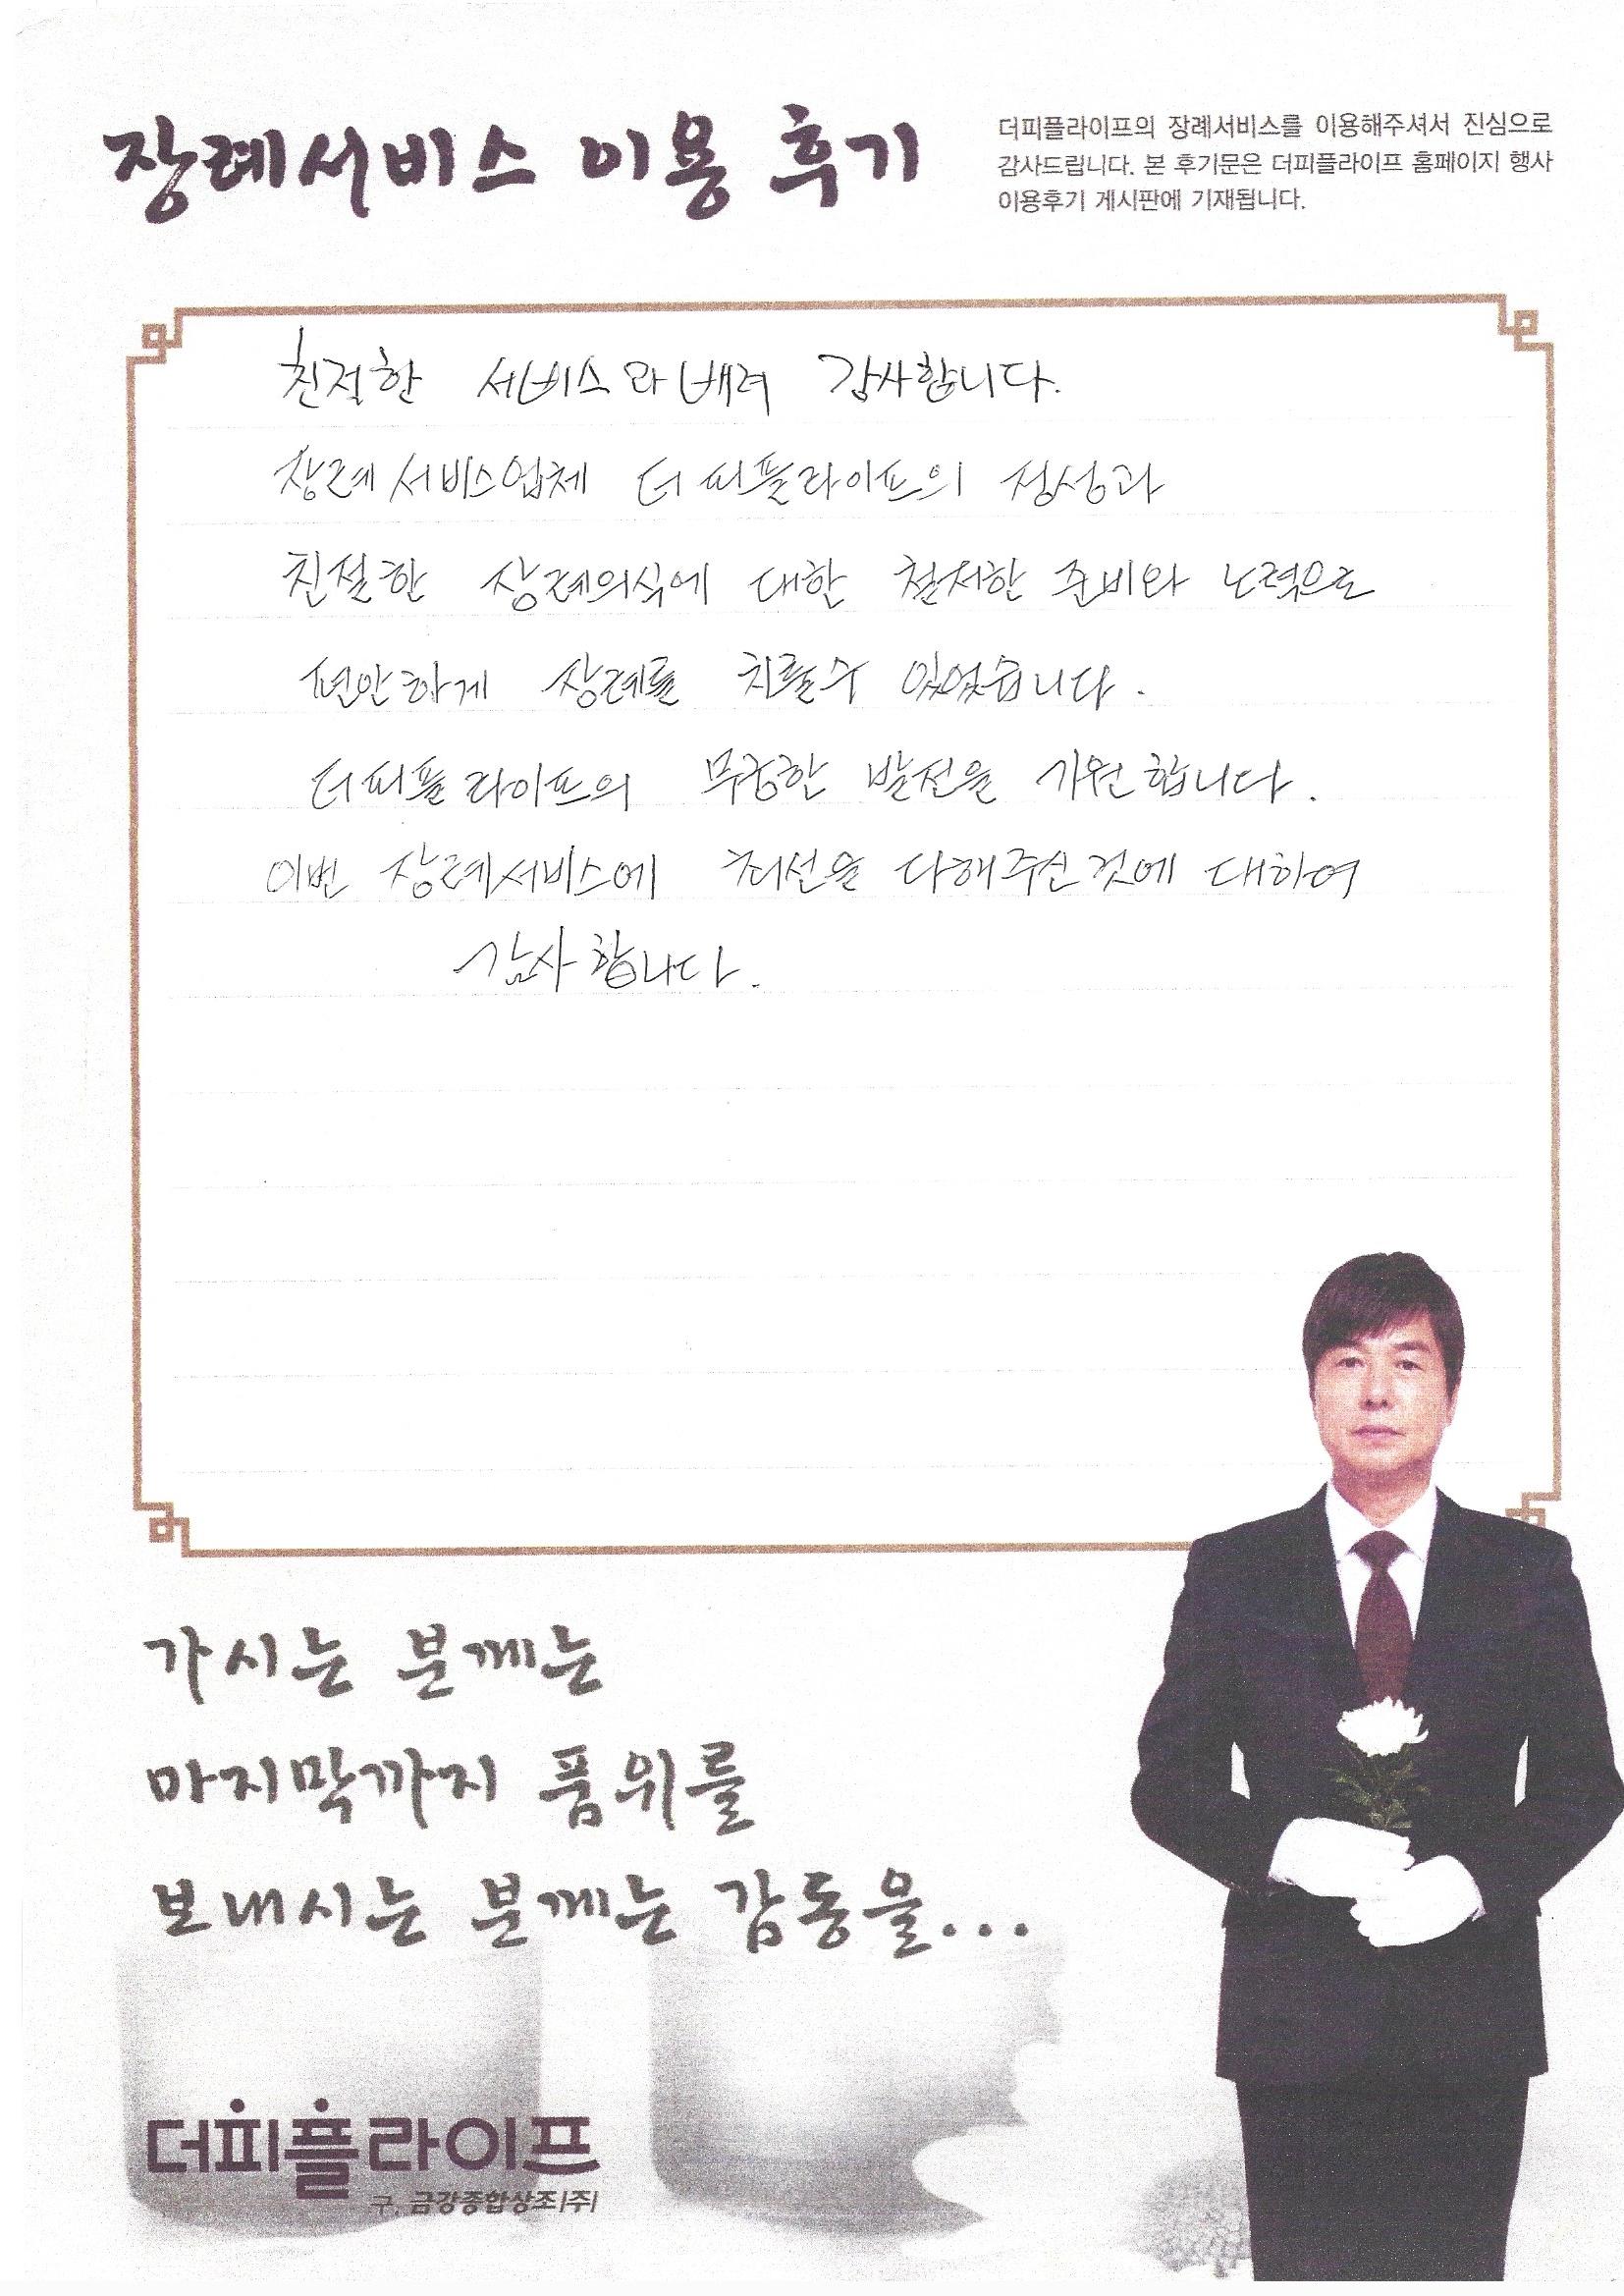 장례서비스 이용 후기
더피플라이프의 장례서비스를 이용해주셔서 진심으로
감사드립니다. 본 후기문은 더피플라이프 홈페이지 행사
이용후기 게시판에 기재됩니다.
친절한 서비스와 배려 감사합니다.
장례서비스업체 더피플라이프의 정성과
친절한 상례의식에 대한 철저한 준비와 노력으로
편안하게 상례를 치룰수 있었습니다.
더피플라이프의 무궁한 발전을 기원합니다.
이번 장례서비스에 최선을 다해주신것에 대하여
감사합니다.
가시는 분께는
마지막까지 품위를
보내시는 분께는 감동을...
더피플라이프
구. 금강종합상조(주)